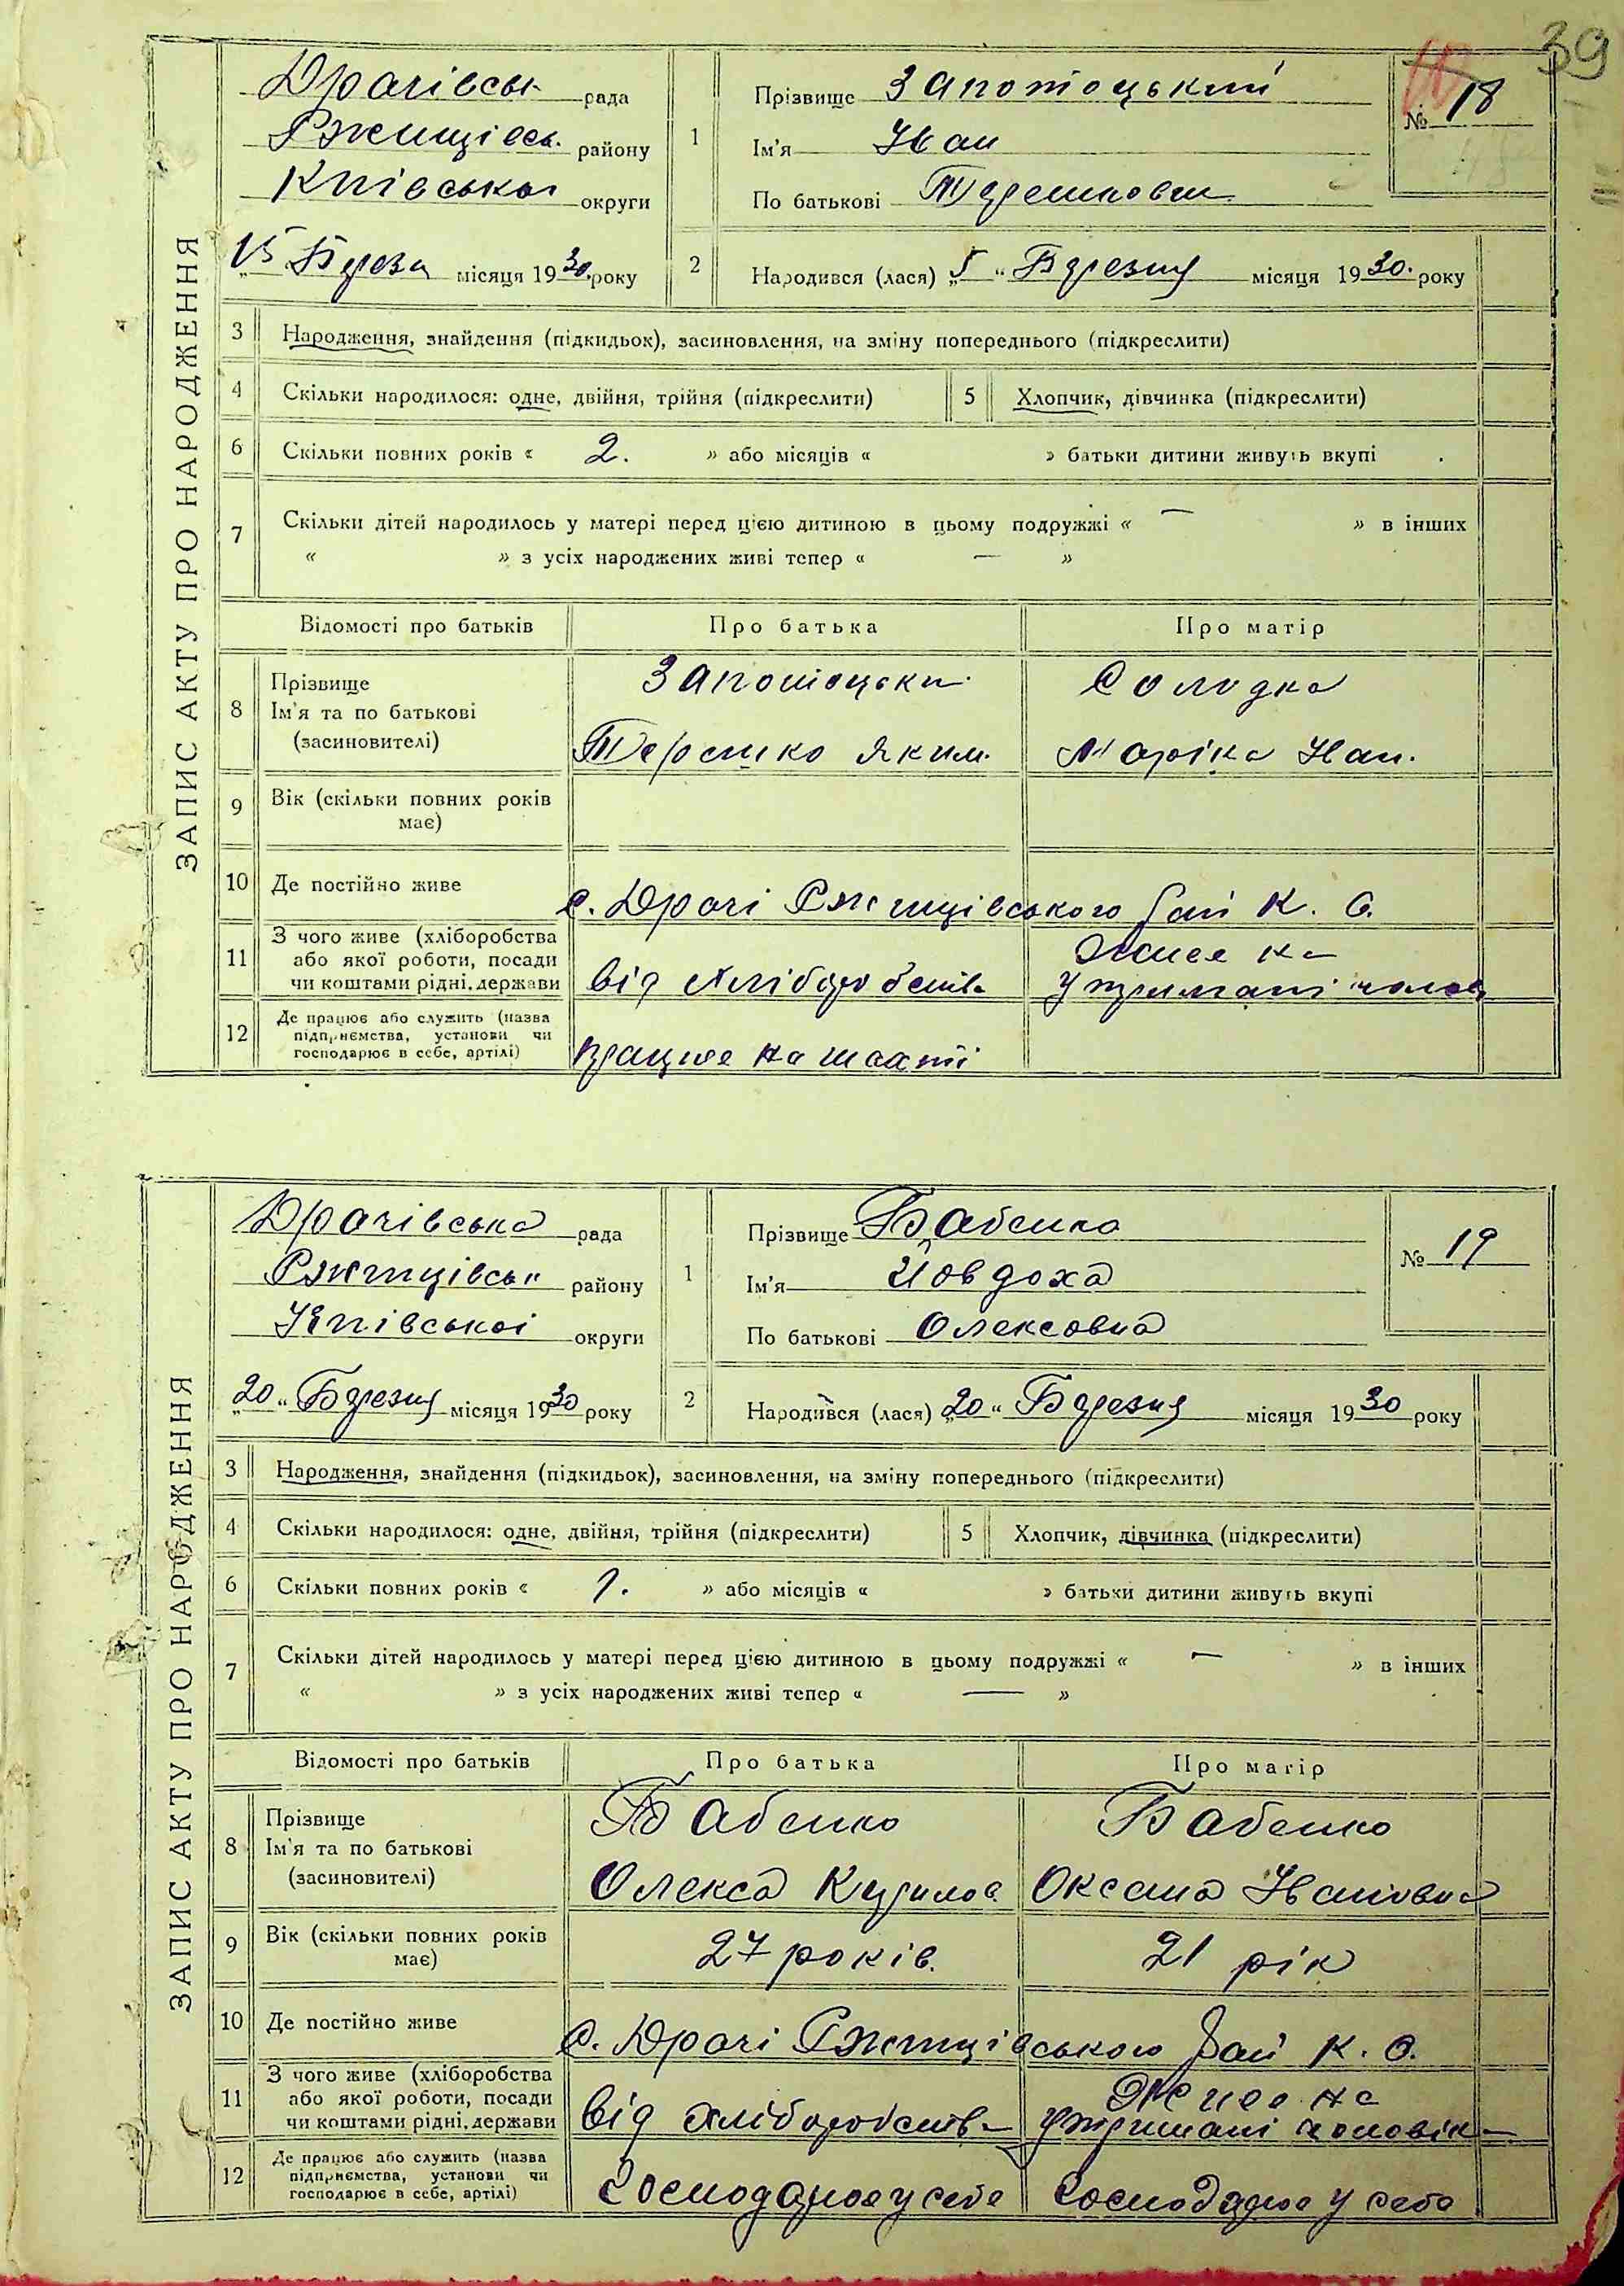 39
ЗАПИС АКТУ ПРО НАРОДЖЕННЯ
Драчівськ рада
Ржищівськ. району
Київської округи
15 Березн місяця 1930 року
1 Прізвище Запотоцький
Ім'я Іван
По батькові Терешкович
№ 18
2 Народився (лася) „5“ Березня місяця 1930. року
3 Народження, знайдення (підкидьок), засиновлення, на зміну попереднього (підкреслити)
4 Скільки народилося: одне, двійня, трійня (підкреслити) 5 Хлопчик, дівчинка (підкреслити)
6 Скільки повних років « 2. » або місяців « » батьки дитини живуть вкупі
7 Скільки дітей народилось у матері перед цією дитиною в цьому подружжі « — » в інших
« » з усіх народжених живі тепер « — »
Відомості про батьків Про батька Про матір
8 Прізвище
Ім'я та по батькові
(засиновителі)
Запотоцьки Солодка
Терешко Яким. Марійка Іван.
9 Вік (скільки повних років
має)
10 Де постійно живе с. Драчі Ржищівського рай К. О.
11 З чого живе (хліборобства
або якої роботи, посади
чи коштами рідні, держави
від хліборобств Живе на
утриманні чолов
12 Де працює або служить (назва
підприємства, установи чи
господарює в себе, артілі)
працює на
ЗАПИС АКТУ ПРО НАРОДЖЕННЯ
Драчівська рада
Ржищівськ району
Київської округи
„20“ Березня місяця 1930 року
1 Прізвище Бабенко
Ім'я Йовдоха
По батькові Олексовна
№ 19
2 Народився (лася) „20“ Березня місяця 1930 року
3 Народження, знайдення (підкидьок), засиновлення, на зміну попереднього (підкреслити)
4 Скільки народилося: одне, двійня, трійня (підкреслити) 5 Хлопчик, дівчинка (підкреслити)
6 Скільки повних років « 1. » або місяців « » батьки дитини живуть вкупі
7 Скільки дітей народилось у матері перед цією дитиною в цьому подружжі « — » в інших
« » з усіх народжених живі тепер « — »
Відомості про батьків Про батька Про матір
8 Прізвище
Ім'я та по батькові
(засиновителі)
Бабенко Бабенко
Олекса Кирилов Оксана Івановна
9 Вік (скільки повних років
має)
27 років. 21 рік
10 Де постійно живе с. Драчі Ржищівського рай К. О.
11 З чого живе (хліборобства
або якої роботи, посади
чи коштами рідні, держави
від хліборобств Живе на
утримані чоловік
12 Де працює або служить (назва
підприємства, установи чи
господарює в себе, артілі)
Господарює у себе Господарює у себе